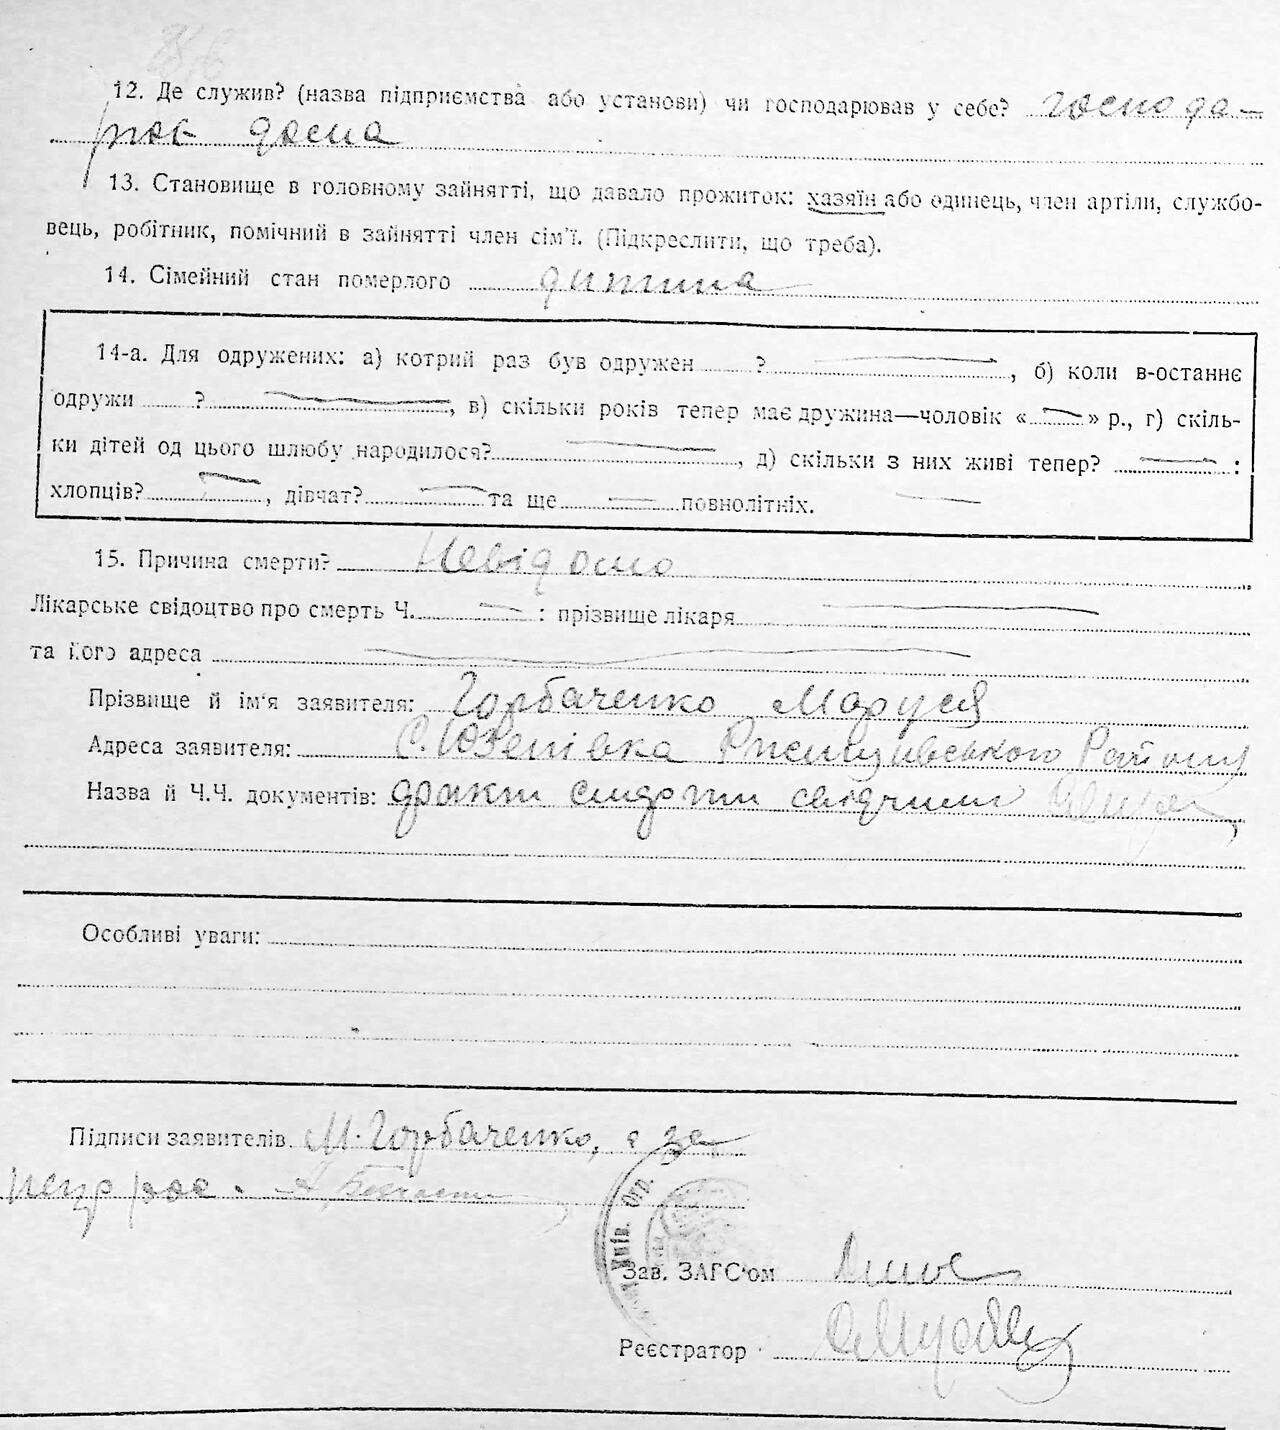 12. Де служив? (назва підприємства або установи) чи господарював у себе? господа-
рює дома
13. Становище в головному зайнятті, що давало прожиток: хазяїн або одинець, член артілі, службо-
вець, робітник, помічний в зайнятті член сім'ї. (Підкреслити, що треба).
14. Сімейний стан померлого дитина
14-а. Для одружених: а) котрий раз був одружен ? , б) коли в-останнє
одружи ? , в) скільки років тепер має дружина—чоловік « » р., г) скіль-
ки дітей од цього шлюбу народилося? , д) скільки з них живі тепер? :
хлопців? , дівчат? та ще повнолітніх.
15. Причина смерти? Невідомо
Лікарське свідоцтво про смерть Ч. : прізвище лікаря
та його адреса
Прізвище й ім'я заявителя: Горбаченко Маруся
Адреса заявителя: С. Юзепівка Ржищівського Району
Назва й Ч.Ч. документів: факт смерти свідчили
Особливі уваги:
Підписи заявителів М. Горбаченко, а за
неур рос.
Київ. Окр.
Зав. ЗАГС'ом
Реєстратор